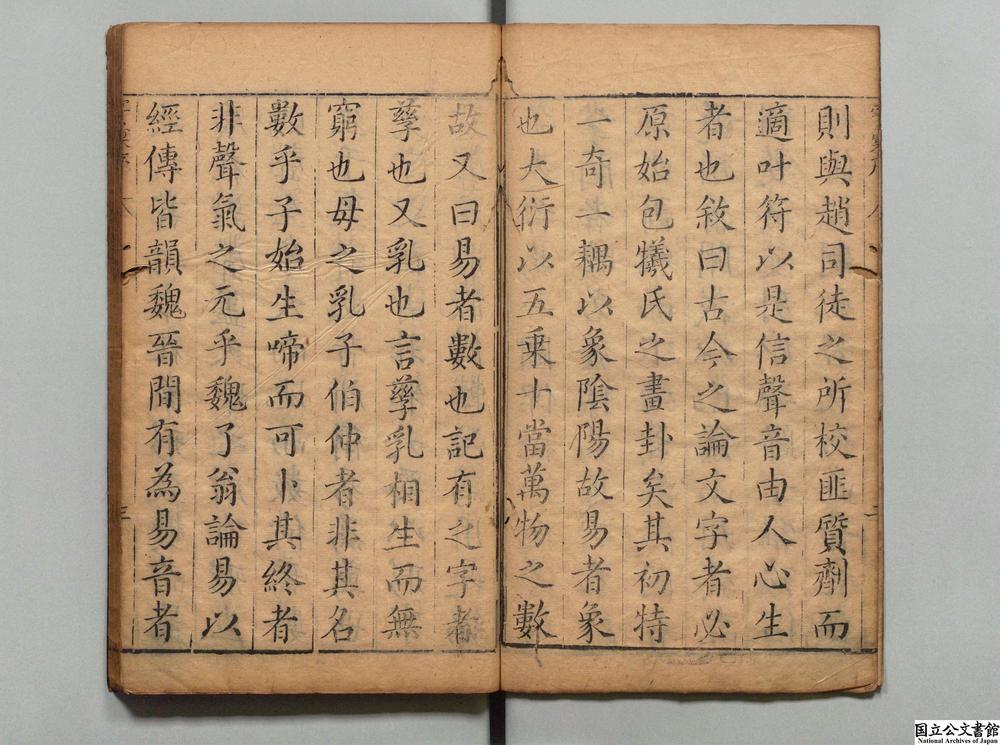 則與趙司徒之所校匪質劑而
適叶符以是信聲音由人心生
者也敘曰古今之論文字者必
原始包犧氏之畫卦矣其初特
一奇一耦以象陰陽故易者象
也大衍以五乘十當萬物之數
故又曰易者數也記有之字者
孳也又乳也言孳乳相生而無
窮也毋之乳子伯仲者非其名
數乎子始生啼而可卜其終者
非聲氣之元乎魏了翁論易以
經傳皆韻魏晉間有為易音者
三
国立公文書館
National Archives of Japan